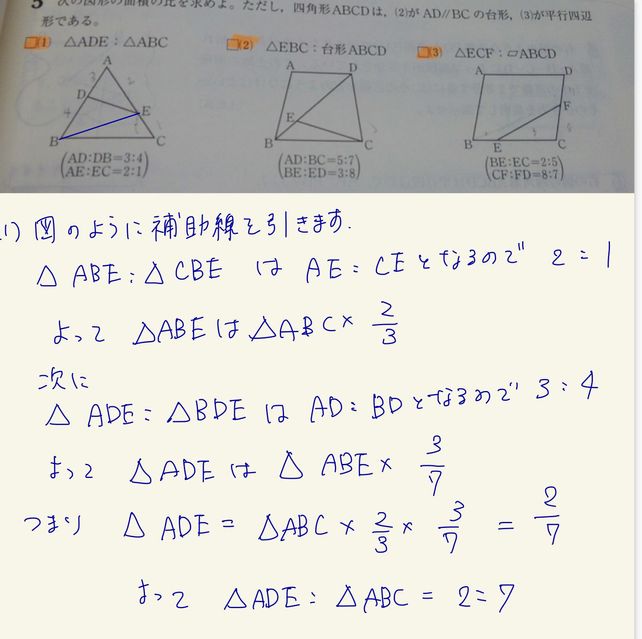 5 次の図形の面積の比を求めよ。ただし, 四角形ABCDは, (2)がAD//BCの台形, (3)が平行四辺
形である。
(1) △ADE：△ABC
(2) △EBC：台形ABCD
(3) △ECF：▱ABCD
A
3
2
D
4
E
B
C
(AD:DB=3:4)
(AE:EC=2:1)
A
D
E
B
C
(AD:BC=5:7)
(BE:ED=3:8)
A
D
F
B
E
C
(BE:EC=2:5)
(CF:FD=8:7)
(1) 図のように補助線を引きます.
△ABE：△CBE は AE：CEとなるので 2：1
よって △ABEは△ABC× 2/3
次に
△ADE：△BDE は AD：BDとなるので 3：4
よって △ADE は △ABE× 3/7
つまり △ADE = △ABC × 2/3 × 3/7 = 2/7
よって △ADE：△ABC = 2：7